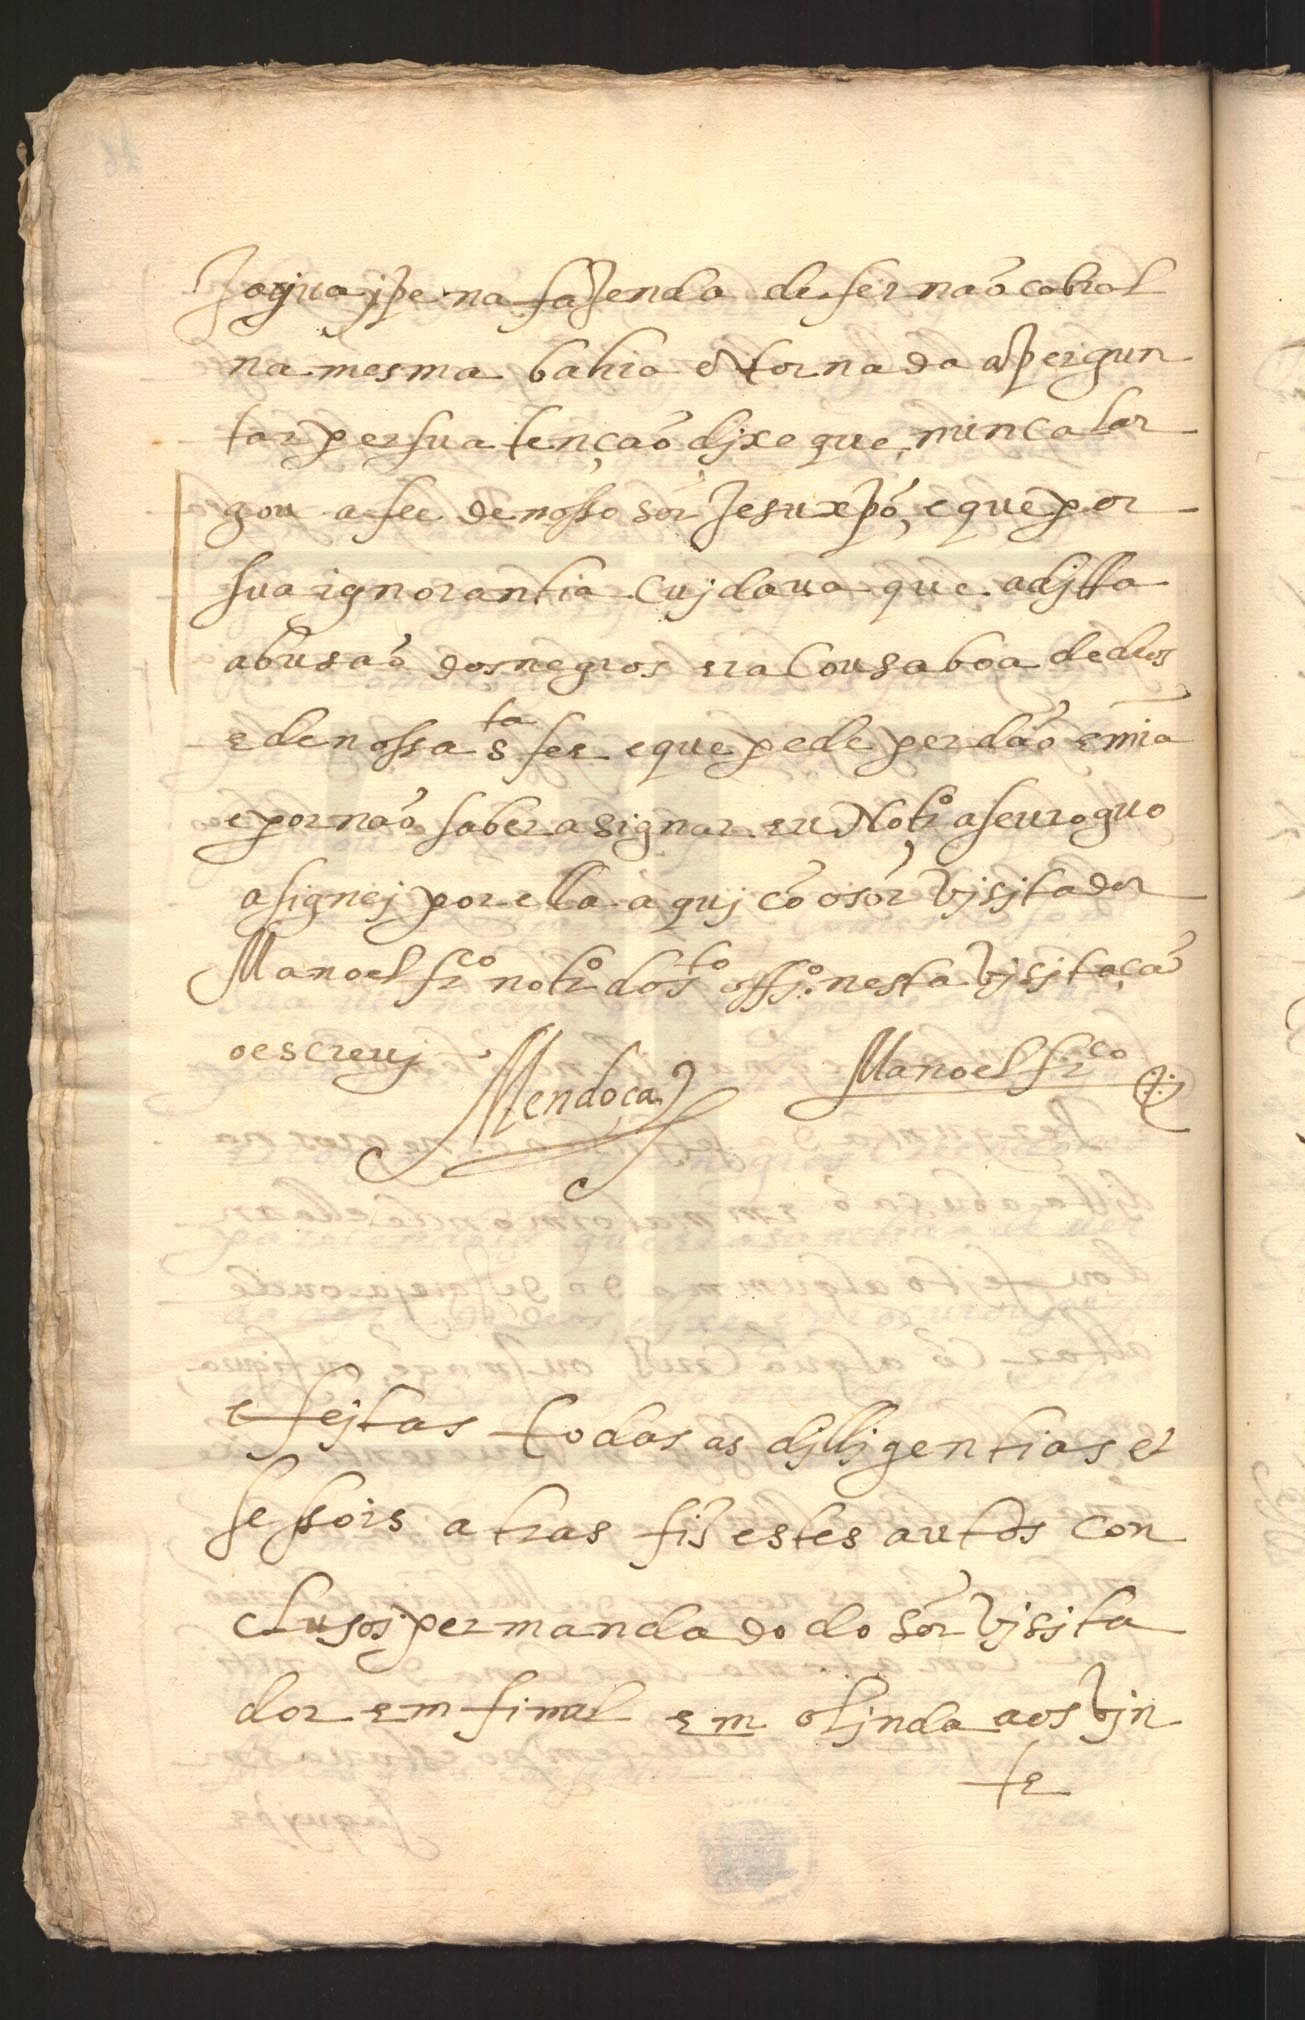 Jaguaype na fazenda de fernaõ cabral
na mesma bahia E tornada a pergun
tar per sua tençaõ dixe que nunca lar
gou a fee de nosso sõr Jesu xpõ, e que por
sua ignorantia Cujdaua que a djtta
abusaõ dos negros era Cousa boa de deos
e de nossa sta fee e que pede perdaõ e mia
e por naõ saber asignar eu Notro a seu roguo
asignej por ella aquj cõ o sõr Vjsjtador
Manoel frco notro do sto offjo. nesta Vjsjtaçaõ
o escreuj
Mendoça Manoel frco
e fejtas todas as djlljgentias e
sessois atras fis estes autos con
clusos per mandado do sõr Vjsjta
dor em final em oljnda aos Vjn
te